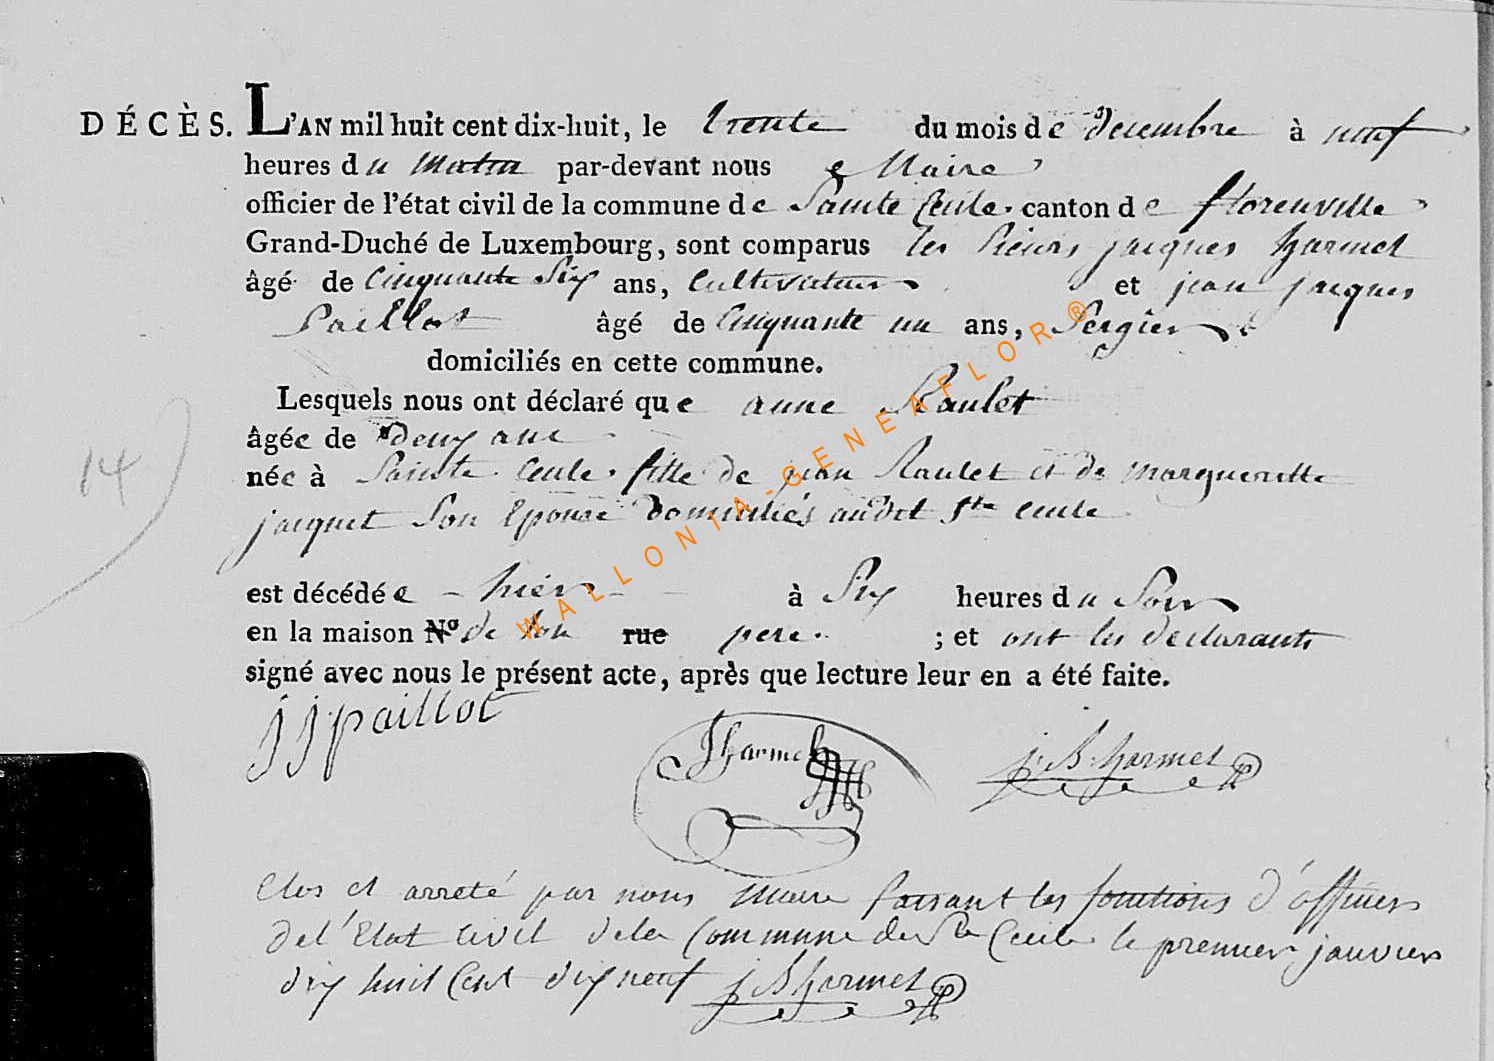 DÉCÈS. L'AN mil huit cent dix-huit, le trente du mois de Decembre à neuf
heures du Matin par-devant nous Maire
officier de l'état civil de la commune de Sainte Cecile canton de florenville
Grand-Duché de Luxembourg, sont comparus les Sieurs jacques harmel
âgé de Cinquante Six ans, Cultivateur et jean jacques
Paillot âgé de Cinquante un ans, Sergier
domiciliés en cette commune.
Lesquels nous ont déclaré que anne Raulet
âgée de deux ans
née à Sainte Cecile fille de jean Raulet et de margueritte
jacquet Son Epouse domiciliés audit Ste Cecile
est décédée hier à Six heures du Soir
en la maison N° de Son rue pere ; et ont les declarants
signé avec nous le présent acte, après que lecture leur en a été faite.
jjpaillot Jharmel j.B.harmel
14
Clos et arreté par nous Maire faisant les fonctions d'officier
de l'Etat civil dela Commune de Ste Cecile le premier janvier
dix huit Cent dix neuf jBharmel
WALLONIA-GENEAFLOR®